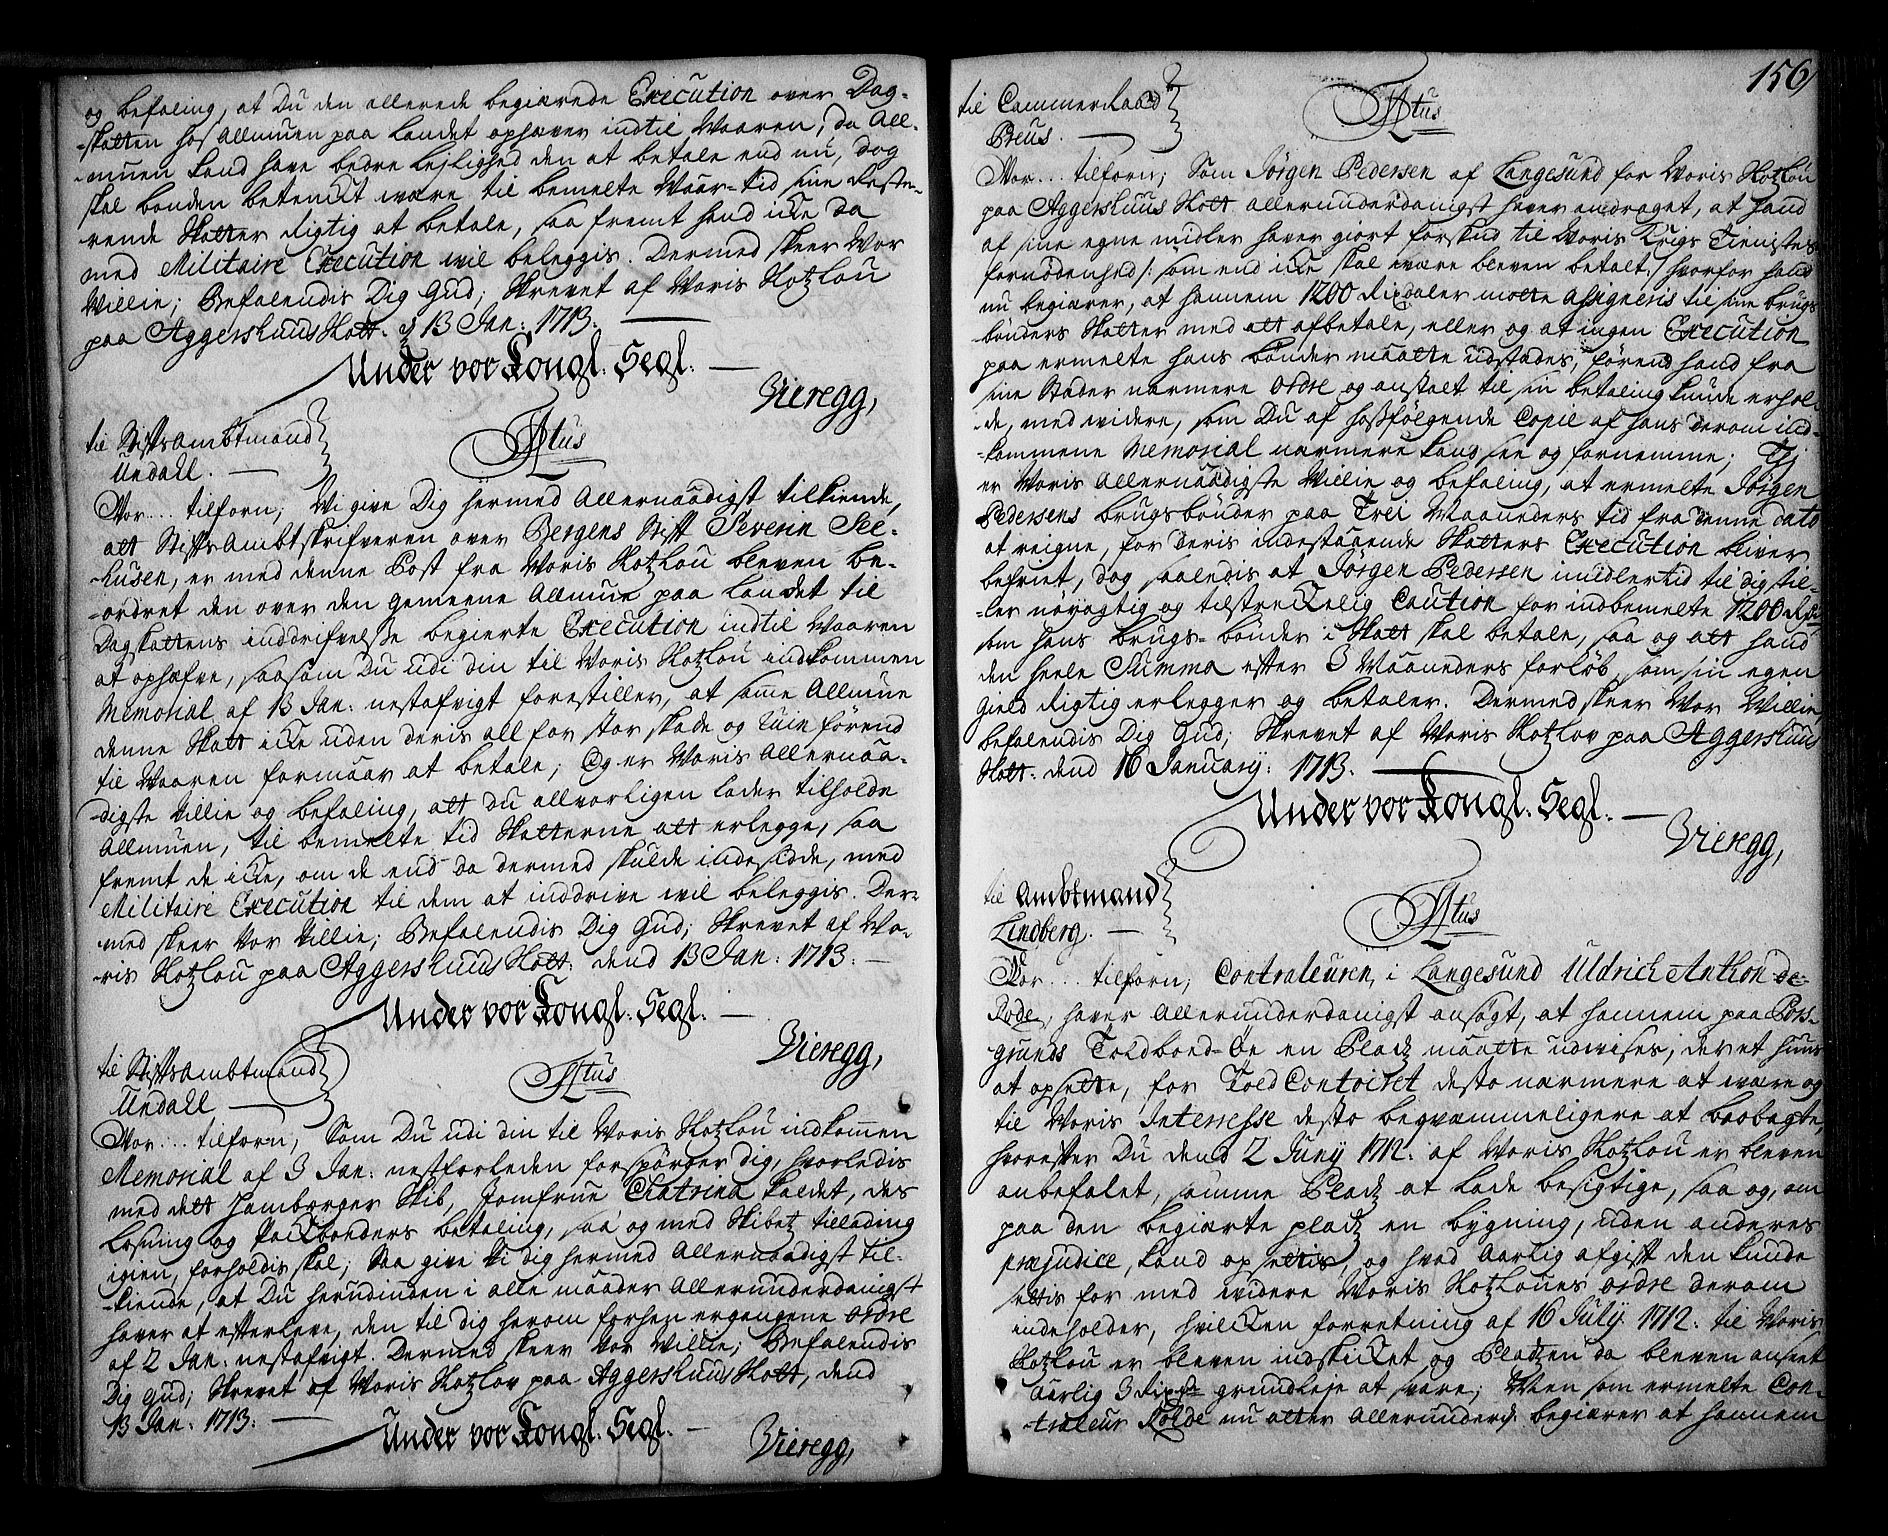 og befaling, at Du den allerede begiærede Execution over Dag-
-skatten hos Allmuen paa Landet ophæver indtil Waaren, da All-
-muen kand have bedre lejlighed den at betale end nu, dog
skal bonden betencht være til bemelte Waar-tid sine Reste-
rende Skatter rigtig at betale, saa fremt hand iche da
med Militaire Execution vil beleggis. Dermed skeer Vor
Willie; Befalendis Dig Gud; Skrevet af Woris Slotzlou
paa Aggershuus Slott. d 13 Jan: 1713.
Under vor Kongl. Segl.
Vieregg,
til Stiftsambtmand
Undall.
Atus
Vor... tilforn; Wi give Dig hermed Allernaadigst tilkiende,
att Stiftsambtskrifveren over Bergens Stift Severin See-
-husen, er med denne Post fra Woris Slotzlou bleven be-
-ordret den over den gemeene Allmue paa Landet til
Dagskattens inddrifvelse begierte Execution indtil Waaren
at ophæfve, saasom Du udi din til Woris Slotzlou indkommen
Memorial af 13 Jan: nestafvigt forestiller, at samme Allmue
denne Skatt iche uden deris all for stor skade og Ruin førend
til Waaren formaar at betale; Og er Woris Allernaa-
-digste villie og befaling, att du allvorligen lader tilholde
Allmuen, til bemelte tid Skatterne att erlegge, saa
fremt de iche, om de end da dermed skulde indesidde, med
Militaire Execution til dem at inddrive vil beleggis. Der-
-med skeer Vor Villie; Befalendis Dig Gud; Skrevet af Wo-
-ris Slotzlou paa Aggershuus Slott: dend 13 Jan: 1713.
Under vor Kongl. Segl.
Vieregg,
til Stiftsambtmand
Undall
Atus
Vor... tilforn; Som Du udi din til Woris Slotzlou indkommen
Memorial af 3 Jan: nestforleden forspørger dig, hvorledis
med dett Hamborger Skib, Jomfrue Chatrina kaldet, des
Losning og Packboeders betaling, saa og med Skibetz tillading
igien, forholdis skal; Saa give Vi dig hermed Allernaadigst til-
-kiende, at Du herudinden i alle maader Allerunderdanigst
haver at efterleve, den til dig herom forhen ergangene ordre
af 2 Jan: nestafvigt. Dermed skeer Vor Willie; Befalendis
Dig Gud; Skrevet af Woris Slotzlov paa Aggershuus Slott, dend
13 Jan: 1713.
Under vor Kongl. Segl.
Vieregg,
156
til Cammerraad
Preus.
Atus
Vor... tilforn; Som Jørgen Pedersen af Langesund for Woris Slotzlou
paa Aggershuus Slott allerunderdanigst haver andraget, at hand
af sine egne midler haver giort forskud til Woris Krigs Tienistes
fornødenhed /: som end iche skal være bleven betalt :/ hvorfor hand
nu begiærer, at hannem 1200 Rixdaler motte assigneris til sine brugs
bønders Skatter med att afbetale, eller og at ingen Execution
paa ermelte hans bønder maatte udstædes, førend hand fra
sine Stæder nærmere Ordre og anstalt til sin betaling kunde erhol-
-de, med videre, som Du af hosfølgende Copie af hans derom ind-
-kommene Memorial nærmere kand see og fornemme; Thj
er Woris Allernaadigste Willie og befaling, at ermelte Jørgen
Pedersens brugsbønder paa Trei Maaneders tid fra denne dato
at reigne, for deris indestaaende Skatters Execution bliver
befriet, dog saaledis at Jørgen Pedersen imidlertid til dig stil-
-ler nøyagtig og tilstreckelig Caution for indbemelte 1200 Rdr
som hans brugs-bønder i Skatt skal betale, saa og att hand
den heele Summa efter 3 Maaneders forløb, som sin egen
gield rigtig erlegger og betaler. Dermed skeer Vor Willie,
befalendis Dig Gud; Skrevet af Woris Slotzlov paa Aggershuus
Slott. dend 16 January: 1713.
Under vor Kongl. Segl.
Vieregg,
til Ambtmand
Lindberg.
Atus
Vor... tilforn; Contraleuren i Langesund Uldrich Anthon de-
Rode, haver Allerunderdanigst ansøgt, at hannem paa Pors-
grunds Toldboed-Øe en Pladz maatte udvises, der et huus
at opsette, for Told Contoiret desto nærmere at være og
til Woris Interresse desto begvæmmeligere at beobagte,
hvorefter Du dend 2 Juny 1712. af Woris Slotzlou er bleven
anbefalet, samme Pladz at lade besigtige, saa og, om
paa den begiærte pladz en bygning, uden anderes
præjudice, kand opsettis, og hvad Aarlig afgift den kunde
settis for med videre Woris Slotzloues ordre derom
indeholder, hvilchen forretning af 16 July 1712. til Woris
Slotzlou er bleven indskichet og Pladzen da bleven anseet
aarlig 3 Rixdr grundleje at svare; Men som ermelte Con-
-traleur Rolde nu atter Allerunderd. begiærer at hannem